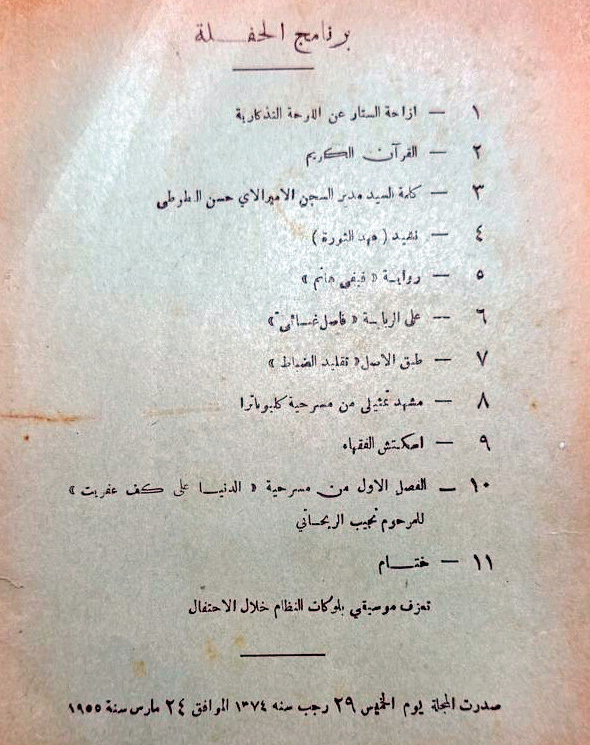 برنامج الحفلة
١ — ازاحة الستار عن اللوحة التذكارية
٢ — القرآن الكريم
٣ — كلمة السيد مدير السجن الاميرالاي حسن الطوطى
٤ — نشيد ( مهد الثورة )
٥ — رواية « فيفى هانم »
٦ — على الربابة « فاصل غنائى »
٧ — طبق الاصل « تقليد الضباط »
٨ — مشهد تمثيلى من مسرحية كليوباترا
٩ — اسكتش الفقهاء
١٠ — الفصل الاول من مسرحية « الدنيا على كف عفريت »
للمرحوم نجيب الريحاني
١١ — ختام
تعزف موسيقي بلوكات النظام خلال الاحتفال
صدرت المجلة يوم الخميس ٢٩ رجب سنه ١٣٧٤ الموافق ٢٤ مارس سنة ١٩٥٥